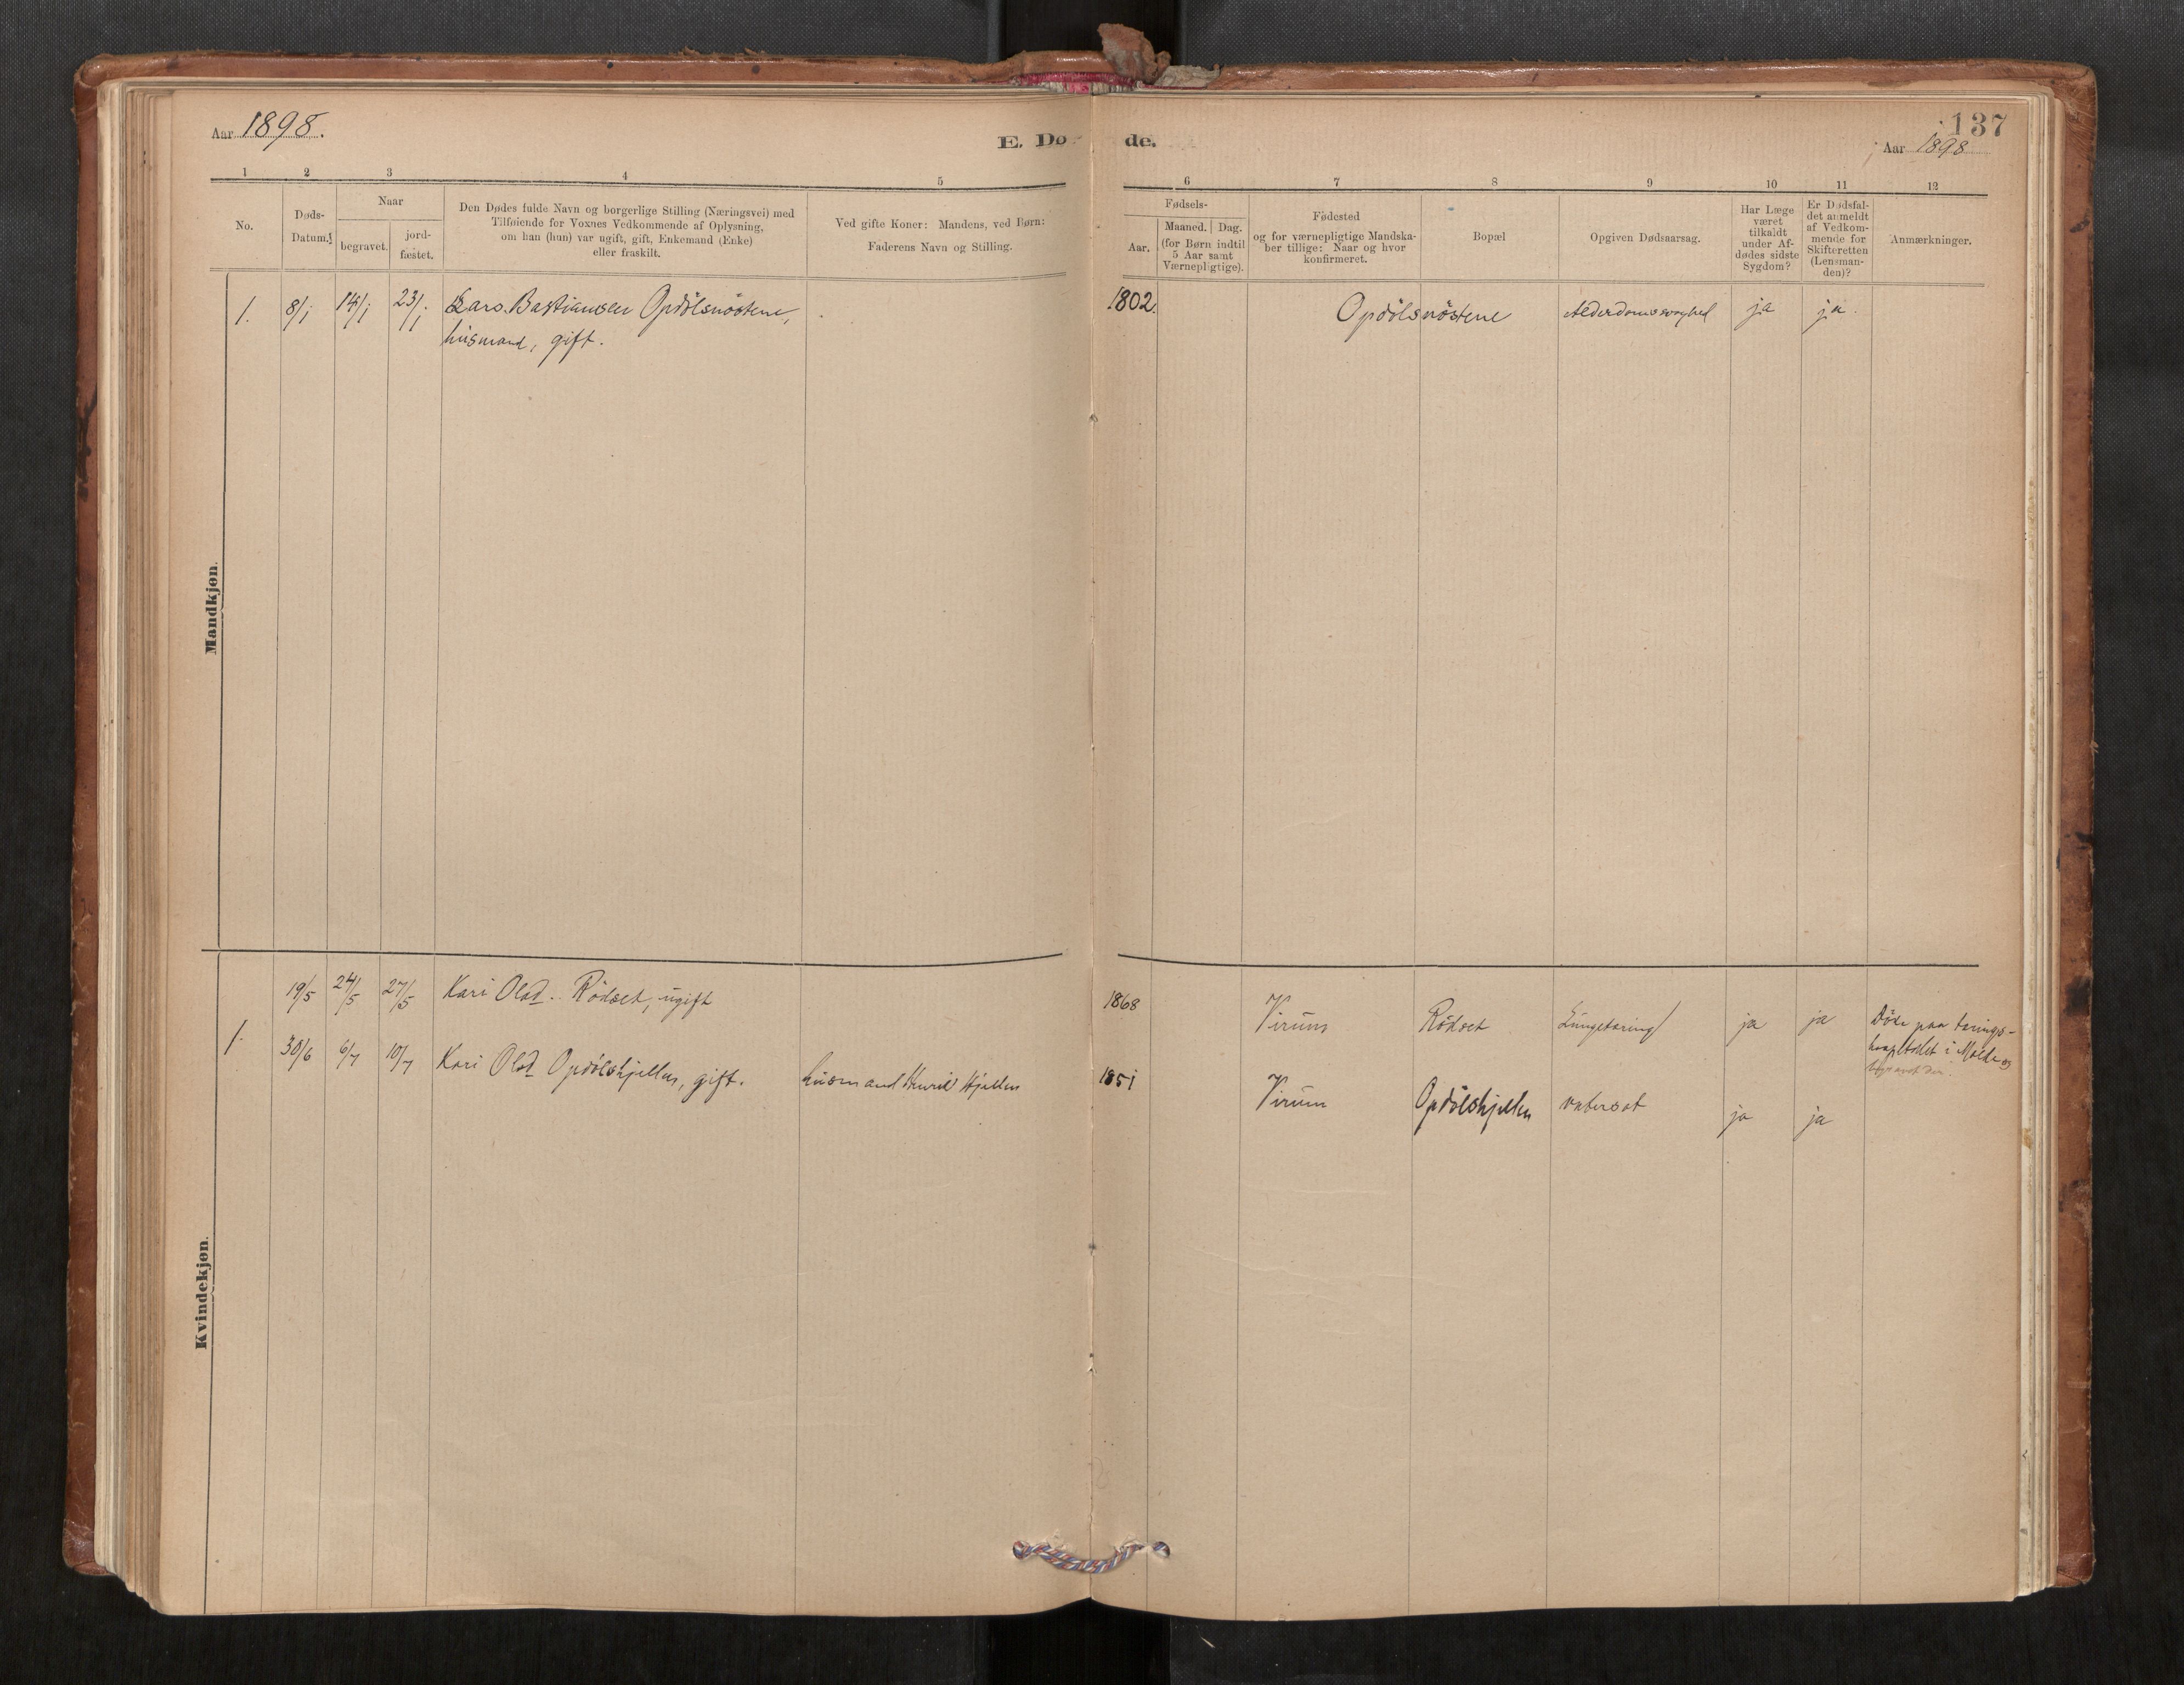 Aar 1898.
E. Dø
de.
137
Aar 1898
1 2 3 4 5
6 7 8 9 10 11 12
No.
Døds-
Datum.
Naar
begravet.
jord-
fæstet.
Den Dødes fulde Navn og borgerlige Stilling (Næringsvei) med
Tilføiende for Voxnes Vedkommende af Oplysning,
om han (hun) var ugift, gift, Enkemand (Enke)
eller fraskilt.
Ved gifte Koner: Mandens, ved Børn:
Faderens Navn og Stilling.
Fødsels-
Aar.
Maaned. Dag.
(for Børn indtil
5 Aar samt
Værnepligtige).
Fødested
og for værnepligtige Mandska-
ber tillige: Naar og hvor
konfirmeret.
Bopæl
Opgiven Dødsaarsag.
Har Læge
været
tilkaldt
under Af-
dødes sidste
Sygdom?
Er Dødsfal-
det anmeldt
af Vedkom-
mende for
Skifteretten
(Lensman-
den)?
Anmærkninger.
Mandkjøn.
1. 8/1 14/1 23/1 Lars Bastiansen Opdölsnöstene, 1802. Opdölsnöstene Alderdomssvaghed ja ja.
husmand, gift.
Kvindekjøn.
19/5 24/5 27/5 Kari Olsd. Rödset, ugift 1868 Virum Rödset Lungetæring ja ja Döde paa tærings-
hospitalet i Molde og
begravet der.
1. 30/6 6/7 10/7 Kari Olsd Opdölshjellen, gift. husmand Henrik Hjellen 1851 Virum Opdölshjellen vatersot ja ja